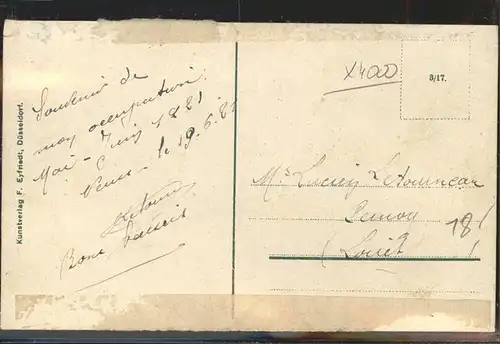 Souvenir de
mon occupation
Mai - Juin 1921
le 19.6.21
Bons baisers
Kunstverlag F. Eyfriedt, Düsseldorf.
X4000
8/17.
Mr Lucien
(Loiret)
18